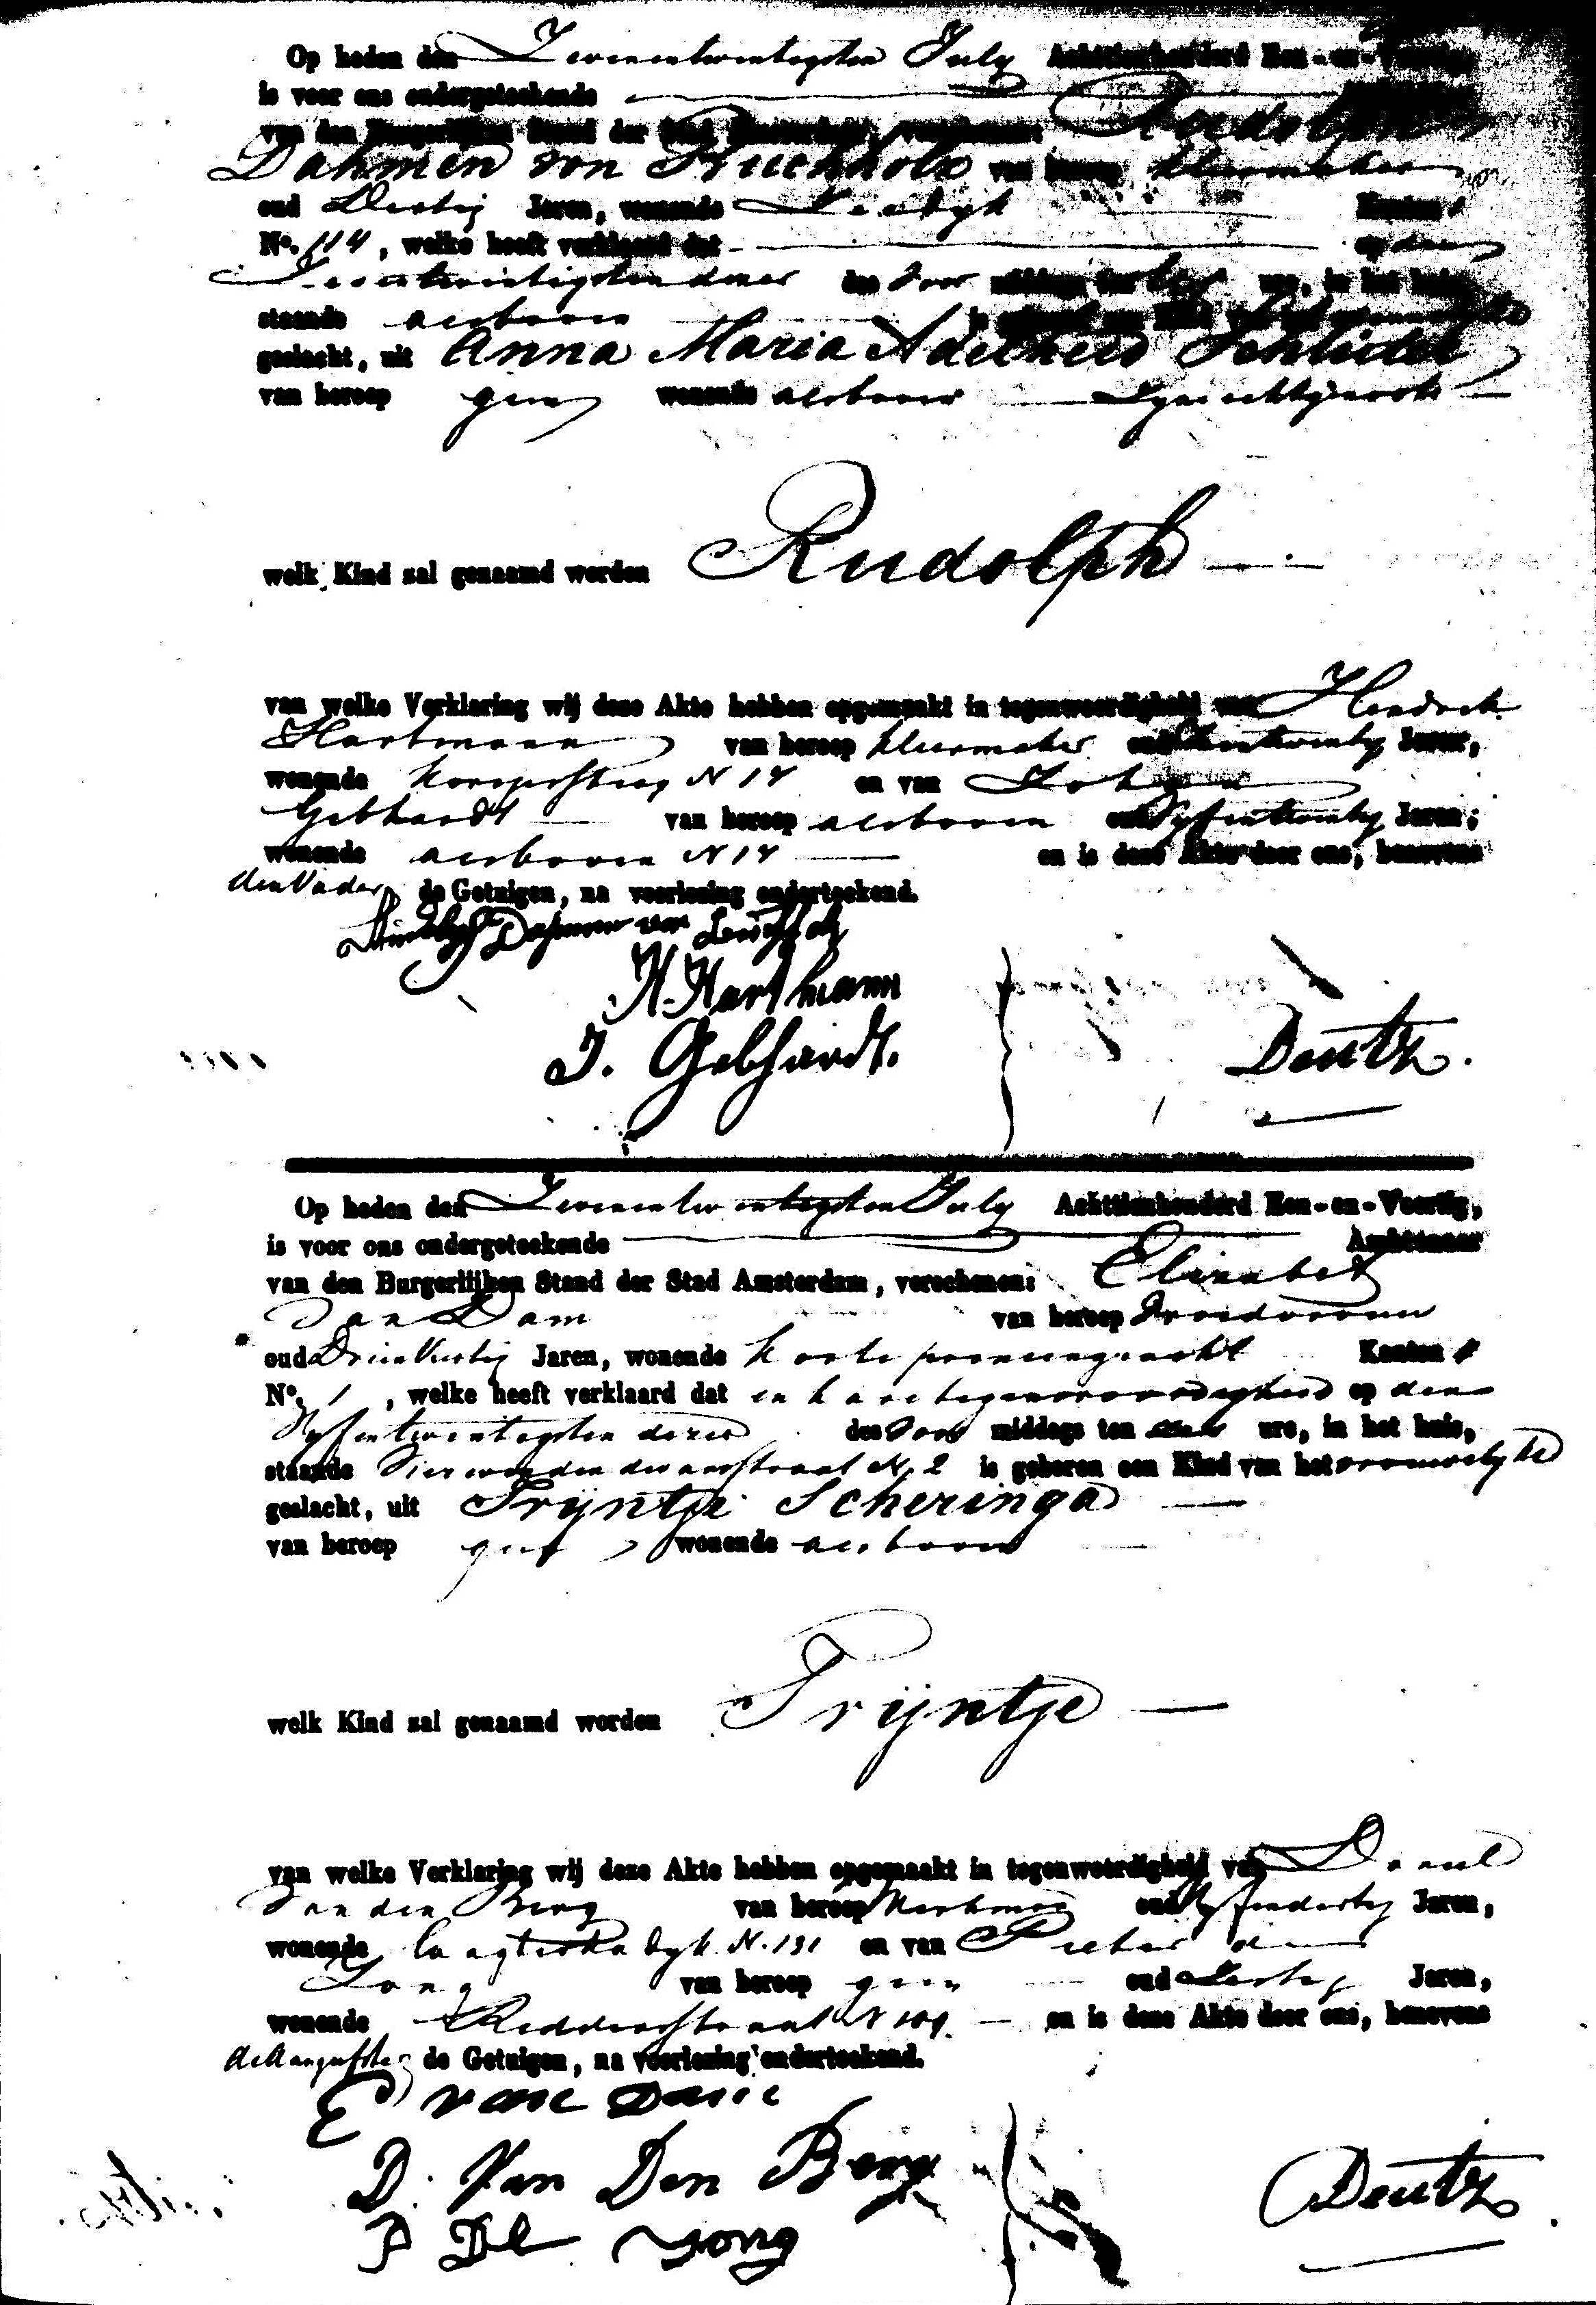 Op heden den Zevenentwintigsten July Achttienhonderd Een-en-Veertig,
is voor ons ondergeteekende
van den Burgerlijken Stand der Stad Amsterdam, verschenen: Rudolph
Dahmen von Buchholz van beroep kleermaker
oud Dertig Jaren, wonende Zeedyk Kanton 1
No. 114, welke heeft verklaard dat op den
dezer des voor middags ten ure, in het huis,
staande alsboven
geslacht, uit Anna Maria Adelheid Schlutel
van beroep geen wonende alsboven Zyne echtgenoote
welk Kind zal genaamd worden Rudolph
van welke Verklaring wij deze Akte hebben opgemaakt in tegenwoordigheid van Hendrik
Hartmann van beroep kleermaker oud Jaren,
wonende N 14 en van Johan
Gebhardt van beroep alsboven oud Vyfentwintig Jaren;
wonende alsboven N 14 en is deze Akte door ons, benevens
den Vader de Getuigen, na voorlezing onderteekend.
Rudolph Dahmen von Buchholz
H. Hartmann
J. Gebhardt.
Deutz.
Op heden den Zevenentwintigsten July Achttienhonderd Een-en-Veertig,
is voor ons ondergeteekende Ambtenaar
van den Burgerlijken Stand der Stad Amsterdam, verschenen: Elizabet
van Dam van beroep Vroedvrouw
oud Drieenveertig Jaren, wonende Korte prinsengracht Kanton 4
No. 1, welke heeft verklaard dat in hare tegenwoordigheid op den
Vyfentwintigsten dezer des voor middags ten ure, in het huis,
staande Vierwindendwarsstraat N. 2 is geboren een Kind van het vrouwelyke
geslacht, uit Tryntje Scheringa
van beroep geen wonende alsboven
welk Kind zal genaamd worden Tryntje
van welke Verklaring wij deze Akte hebben opgemaakt in tegenwoordigheid van Daniel
van den Berg van beroep Werkman oud Vyfendertig Jaren,
wonende Laagtekadyk N. 131 en van Pieter de
Jong van beroep geen oud Dertig Jaren,
wonende Ridderstraat N 109. en is deze Akte door ons, benevens
de Aangeefster de Getuigen, na voorlezing onderteekend.
E van Dam
D. Van Den Berg
P De Jong
Deutz